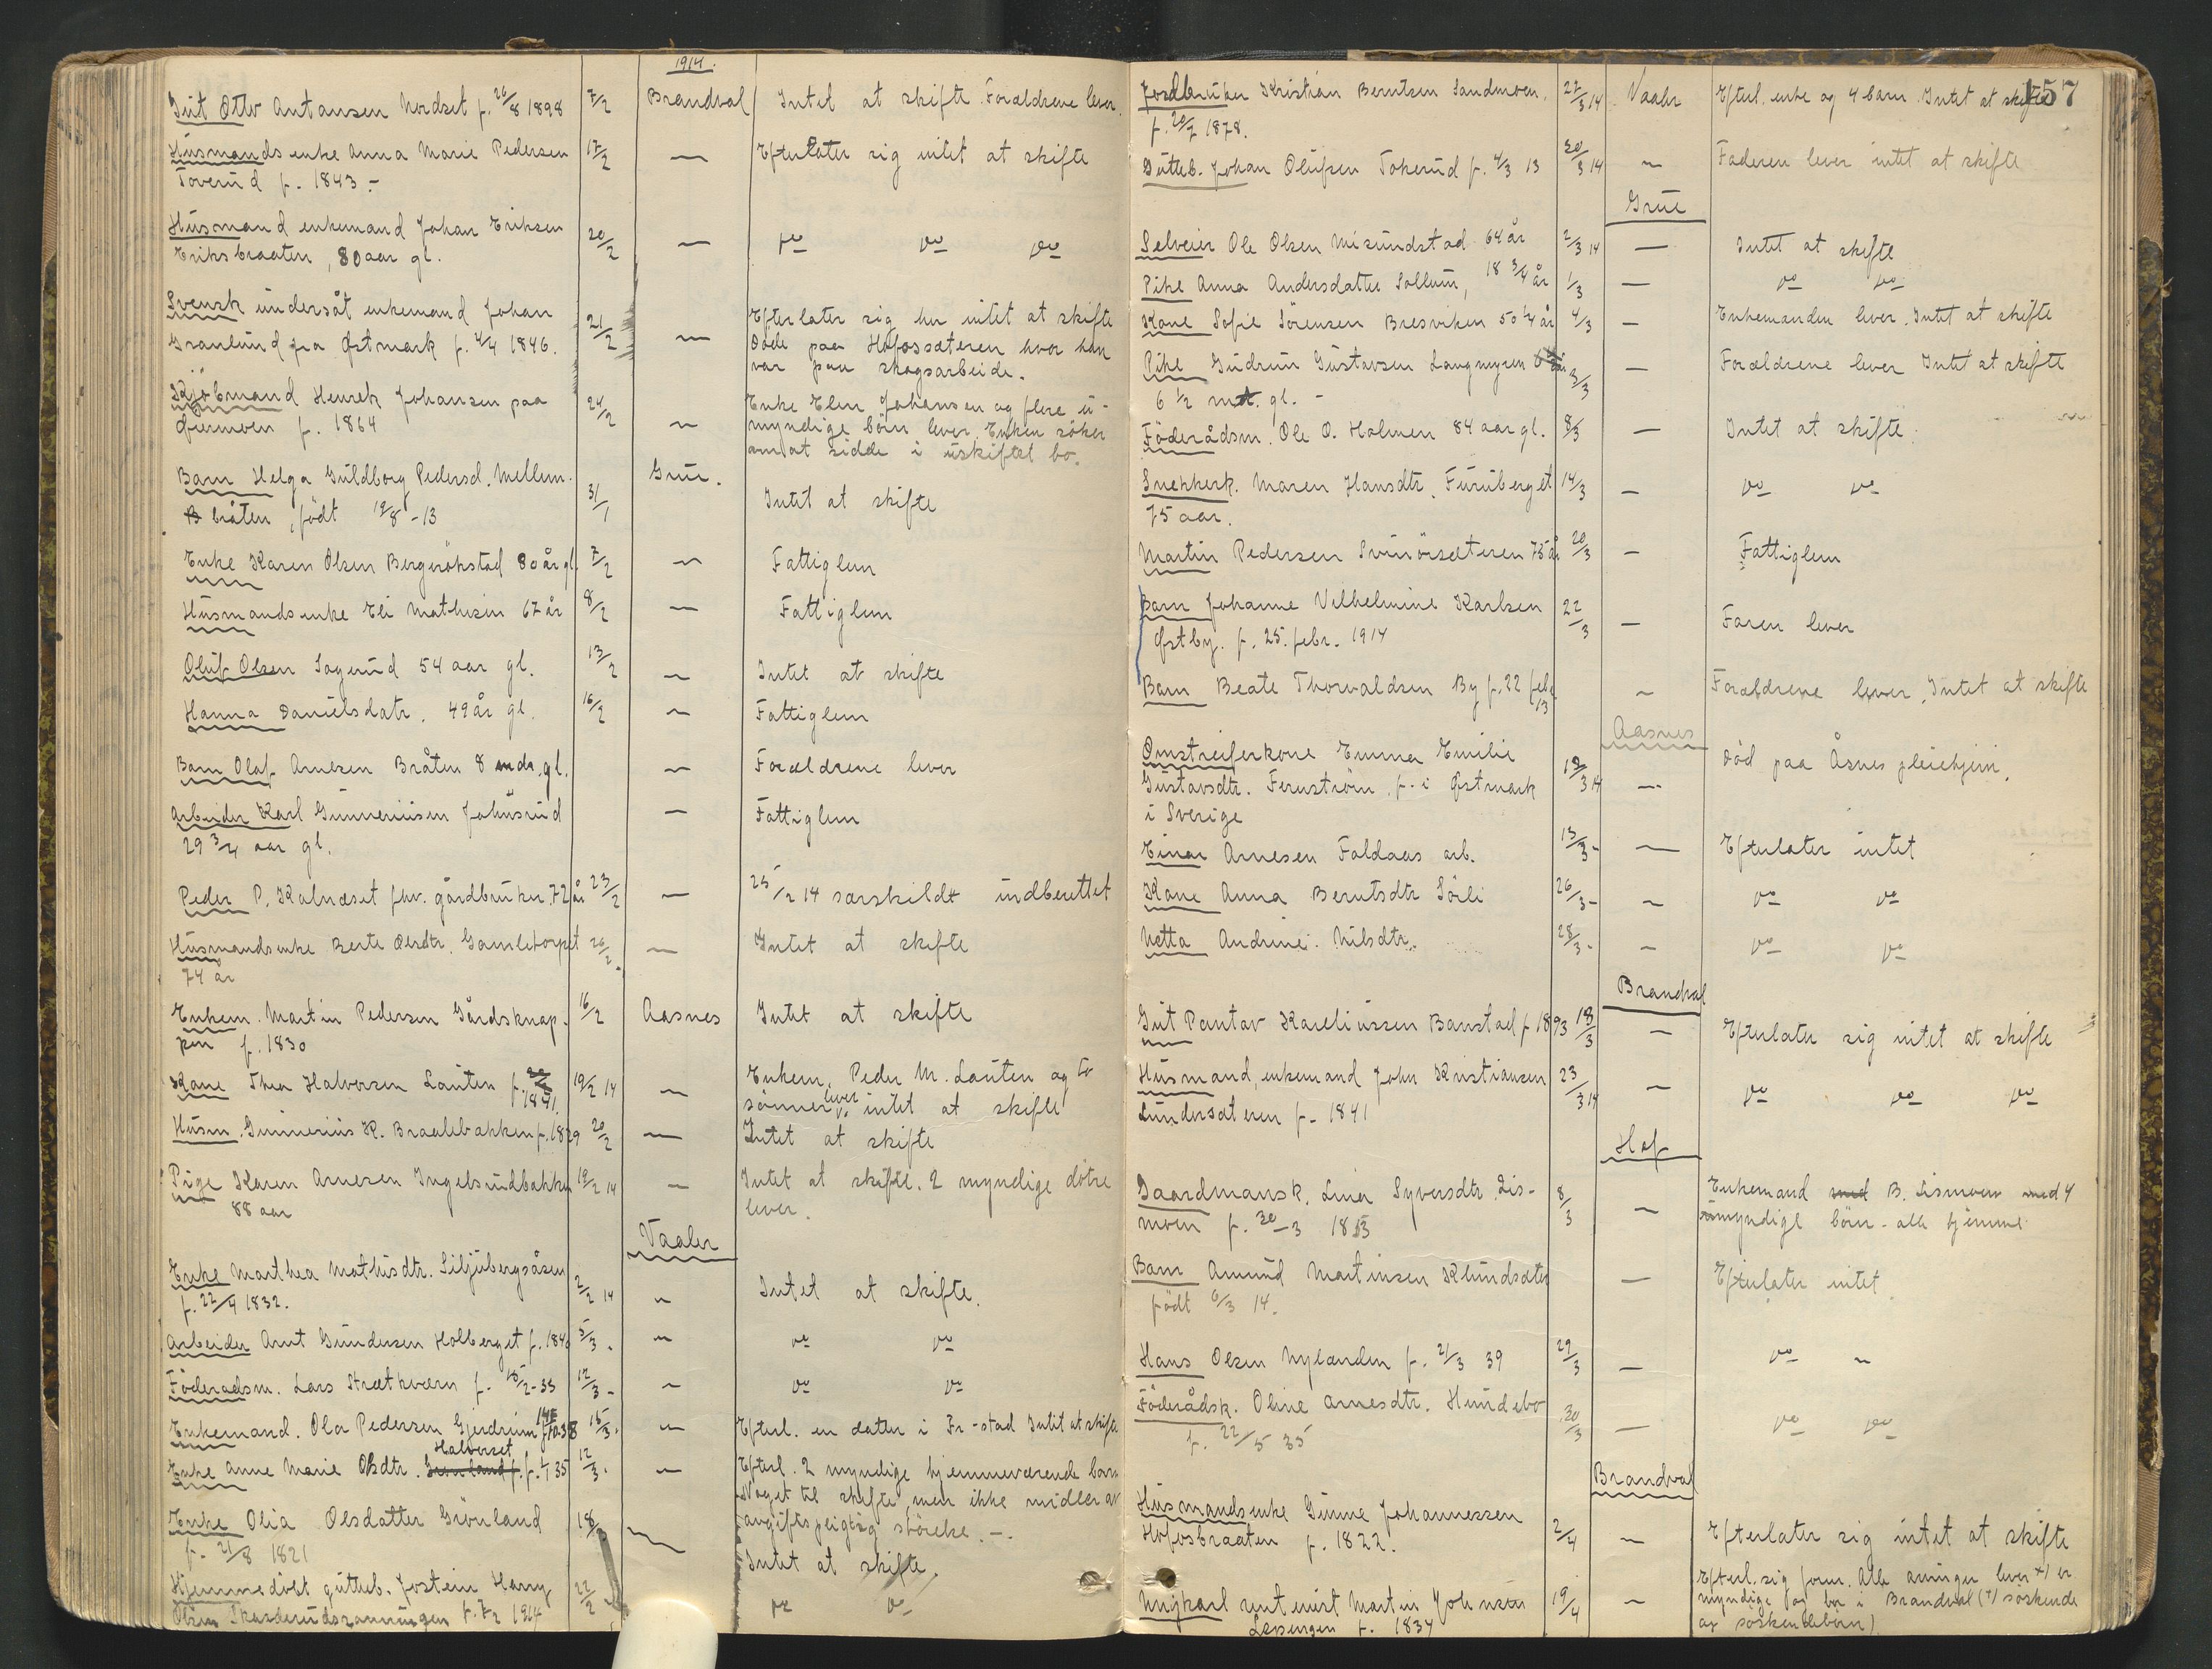 1914.
Gut Otto Antansen Nordset f. 26/8 1898 7/2 Brandval Intet at skifte. Forældrene lever.
Husmands enke Anna Marie Pedersen 17/2 — Efterlater sig intet at skifte
Toverud f. 1843.-
Husmand enkemand Johan Eriksen 20/2 — do do do
Eriksbraaten, 80 aar gl.
Svensk undersåt enkemand Johan 21/2 — Efterlater sig her intet at skifte
Granlund fra Østmark f. 4/4 1846. Døde paa Hofossæteren hvor han
var paa skogsarbeide.
Kjøbmand Henrik Johansen paa 24/2 — Enke Elen Johansen og flere u-
f. 1864 myndige børn lever. Enken søker
om at sidde i uskiftet bo.
Barn Helga Guldborg Pedersd. Mellem- 31/1 Grue. Intet at skifte
bråten, født 19/8 -13
Enke Karen Olsen Bergerökstad 80 år gl. 7/2 — Fattiglem
Husmandsenke Eli Mathisen 67 år 8/2 — Fattiglem
Oluf Olsen Sagerud 54 aar gl. 13/2 — Intet at skifte
Hanna Danielsdatr. 49 år gl. 16/2 — Fattiglem
Barn Olaf Arnesen Bråten 8 mdr. gl. — Forældrene lever
Arbeider Karl Gunneriusen Johnsrud — Fattiglem
29 3/4 aar gl.
Peder P. Kalnæset fhv. gårdbruker 72 år 23/2 — 25/2 14 særskildt indberettet
Husmandsenke Berte Olsdtr. Gamletorpet 26/2 — Intet at skifte
74 år
Enkem. Martin Pedersen Gårdsknap- 16/2 Aasnes Intet at skifte
pen f. 1830
Kone Thea Halvorsen Lauten f. 1841. 19/2 14 — Enkem. Peder M. Lauten og to
sønner lever intet at skifte
Husm. Gunnerius K. Braatebakken f. 1829 20/2 — Intet at skifte
Pige Karen Arnesen Ingelsrudbakken 19/2 14 — Intet at skifte. 2 myndige døtre
88 aar lever.
Vaaler
Enke Marthea Mathisdtr. Siljubergsåsen 2/2 14 — Intet at skifte.
f. 22/4 1832.
Arbeider Arnt Gundersen Holberget f. 1846 5/3. — do do
Föderadsm. Lars Strætkværn f. 15/2-33 12/3 — do do
Enkemand. Ola Pedersen Gjerdrum 1838 15/3. — Efterl. en datter i Fr-stad Intet at skifte
Halverset
Enke Anne Marie Olsdtr. Grønland f. 35 12/3. — Efterl. 2 myndige hjemmeværende barn
Noget til skifte, men ikke midler av
avgiftspligtig størrelse. —.
Enke Olia Olsdatter Grönland 18/ —
f. 21/8 1821 Intet at skifte.
Hjemmedøbt gutteb. Jostein Harry 22/2 do do
Olsen f. 7/2 1914

157
Jordbruker Kristian Berntsen Sandmoen, 27/3 14 Vaaler Efterl. enke og 4 barn. Intet at skifte
f. 20/7 1878.
Gutteb. Johan Olufsen Tokerud f. 4/3 13 30/3 14 — Faderen lever intet at skifte
Grue
Selveier Ole Olsen Misundstad 64 år 2/3 14 — Intet at skifte
Pike Anna Andersdatter Sollum, 18 3/4 år 1/3 — do do
Kone Sofie Sörensen Bresviken 50 1/4 år 4/3 — Enkemanden lever. Intet at skifte
Pike Gudrun Gustavsen Langmyren 3/3 — Forældrene lever Intet at skifte
6 1/2 mdr. gl. -
Föderådsm. Ole O. Holmen 84 aar gl. 8/3 — Intet at skifte
Snekkerk. Maren Hansdtr. Furuberget 14/3 — do do
75 aar.
Martin Pedersen Svinörsæteren 75 år 20/3 — Fattiglem
Barn Johanne Vilhelmine Karlsen 22/3 — Faren lever
Østby. f. 25. febr. 1914
Barn Beate Thorvaldsen By f. 22 feb. 13 — Forældrene lever, Intet at skifte
Aasnes
Omstreiferkone Emma Emilie 18/3 14 — Død paa Åsnes pleiehjem.
Gustavsdtr. Fernström, f. i Østmark
i Sverige
Einar Arnesen Faldaas arb. 13/3- — Efterlater intet
Kone Anna Berntsdtr Sörli 26/3- — do do
Netta Andrine Nilsdtr. 28/3- — do do
Brandval
Gut Pantav Kareliussen Banstad f 1893 18/3 — Efterlater sig intet at skifte
Husmand, enkemand John Kristiansen 23/3 14 — do do do
Lundersæteren f. 1841
Hof
Gaardmansk. Lina Syversdtr. Lis- 8/3 — Enkemand med B. Lismoen med 4
moen f. 30-3 umyndige börn - alle hjemme
Barn Amund Martinsen Klundsæter — Efterlater intet.
født 6/3 14.
Hans Olsen Nylænden f. 21/3 39 29/3 — do "
Föderådsk. Oline Arnesdtr. Hundebo 30/3 — do do
f. 22/5 35
Brandval
Husmandsenke Gunne Johannessen 2/4 — Efterlater sig intet at skifte
Hofosbraaten f. 1822.
Ungkarl rentenist Martin Johnsen 19/4 — Efterl. sig form. Alle arvinger lever x) er
Løpengen f. 1834 myndige og bor i Brandval (x) søskende
og søskendebörn)